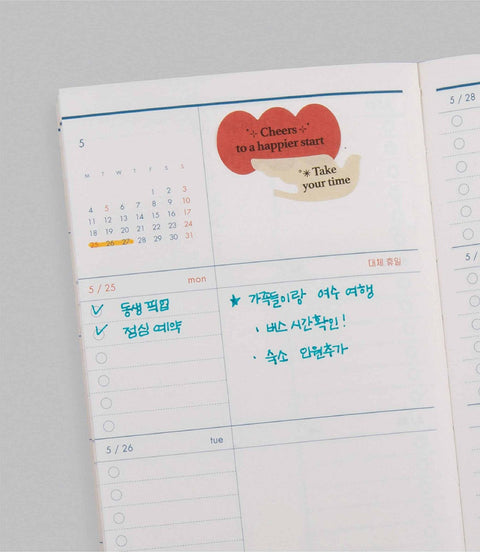 5
M T W T F S S
1 2 3
4 5 6 7 8 9 10
11 12 13 14 15 16 17
18 19 20 21 22 23 24
25 26 27 28 29 30 31
Cheers
to a happier start
Take
your time
5 / 25 mon
동생 픽업
점심 예약
대체 휴일
★ 가족들이랑 여수 여행
· 버스 시간확인!
· 숙소 인원추가
5 / 26 tue
5 / 28
5 /